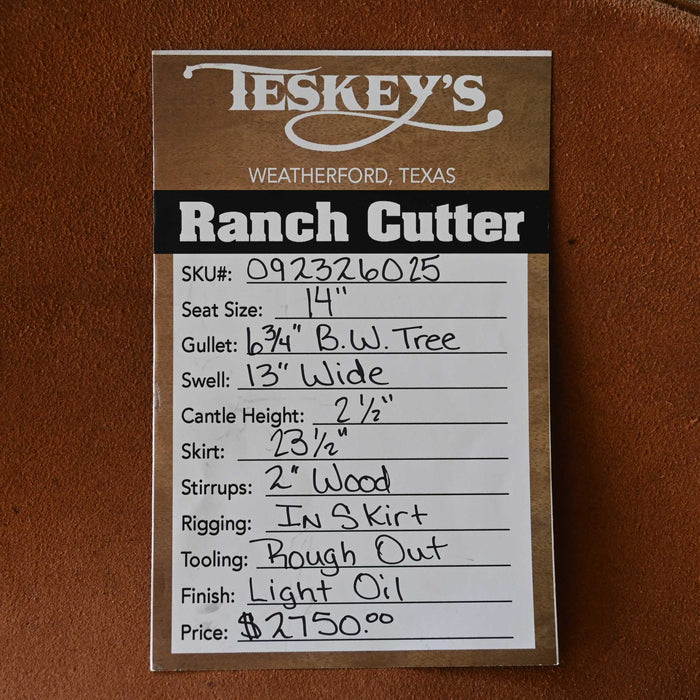 TESKEY'S
WEATHERFORD, TEXAS
Ranch Cutter
SKU#: 092326025
Seat Size: 14"
Gullet: 6 3/4" B.W. Tree
Swell: 13" Wide
Cantle Height: 2 1/2"
Skirt: 23 1/2"
Stirrups: 2" Wood
Rigging: IN SKirt
Tooling: Rough Out
Finish: Light Oil
Price: $2750.00